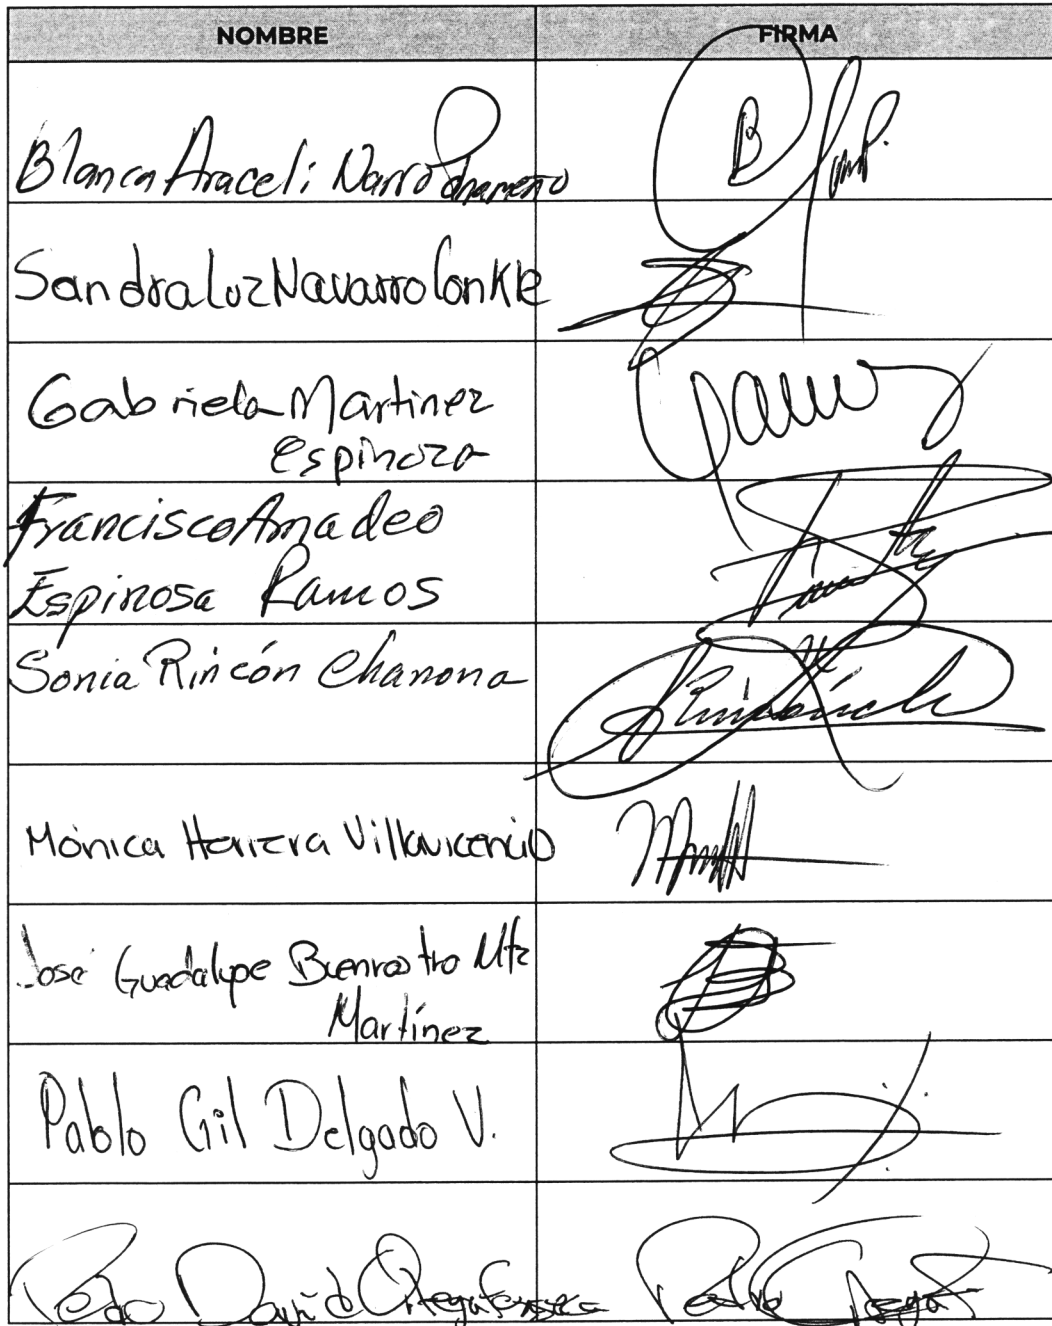 NOMBRE FIRMA
Blanca Araceli Narro
Sandra Luz Navarro Conkle
Gabriela Martinez
Espinoza
Francisco Amadeo
Espinosa Ramos
Sonia Rincón Chanona
Mónica Herrera Villavicencio
José Guadalupe Buenrostro Mtz
Martínez
Pablo Gil Delgado V.
Pedro David Ortega Pedro Ortega